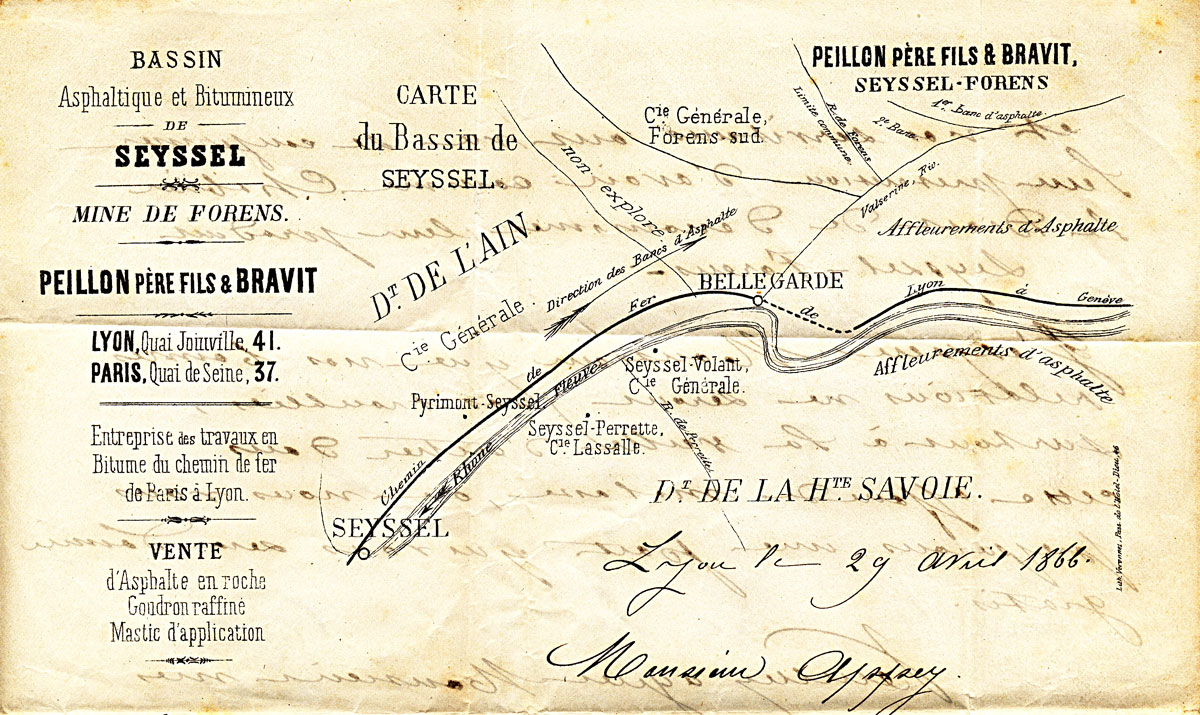 BASSIN
Asphaltique et Bitumineux
DE
SEYSSEL
MINE DE FORENS.
PEILLON PÈRE FILS & BRAVIT
LYON, Quai Joinville, 41.
PARIS, Quai de Seine, 37.
Entreprise des travaux en
Bitume du chemin de fer
de Paris à Lyon.
VENTE
d'Asphalte en roche
Goudron raffiné
Mastic d'application
CARTE
du Bassin de
SEYSSEL
PEILLON PÈRE FILS & BRAVIT,
SEYSSEL-FORENS
1er Banc d'asphalte
2e Banc
R. de Forens
Limite commune
Cie Générale,
Forens sud.
non exploré
Valserine, Riv.
Affleurements d'Asphalte
Dt. DE L'AIN
Direction des Bancs d'Asphalte
Cie Générale.
BELLEGARDE
Chemin de Fer de Lyon à Genève
Affleurements d'asphalte
Seyssel-Volant,
Cie Générale.
Pyrimont-Seyssel
Seyssel-Perrette,
Cie Lassalle.
Rhône Fleuve
SEYSSEL
Dt. DE LA HTE SAVOIE.
Lyon le 29 avril 1866.
Monsieur